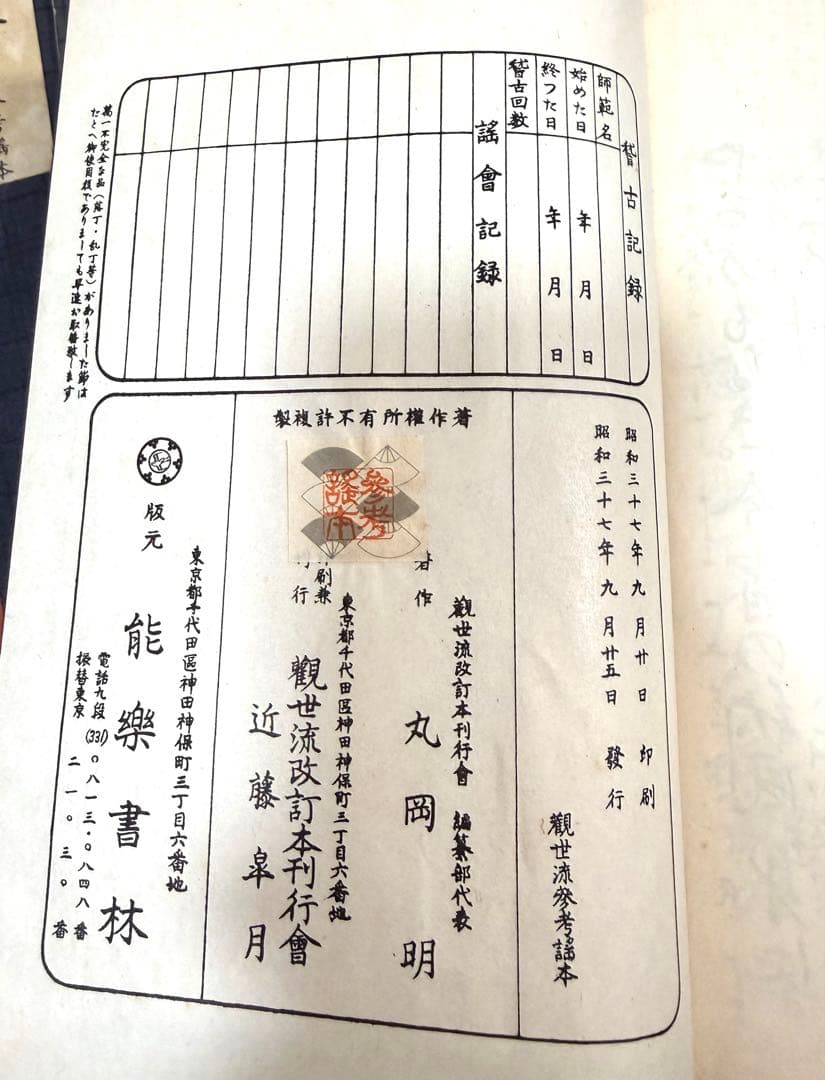 稽古記録
師範名
始めた日　年　月　日
終つた日　年　月　日
稽古回数
謠會記録
萬一不完全な品（落丁・乱丁等）がありました節は
たとへ御使用後でありましても早速お取替致します
昭和三十七年九月廿日　印刷
昭和三十七年九月廿五日　發行
觀世流參考謠本
著作權所有不許複製
參考
謠本
觀世流改訂本刊行會　編纂部代表
著作　丸岡明
東京都千代田區神田神保町三丁目六番地
印刷兼
發行
觀世流改訂本刊行會
近藤皐月
東京都千代田區神田神保町三丁目六番地
版元　能樂書林
電話九段(331)〇八一三・〇八四八番
振替東京　二一〇三〇番